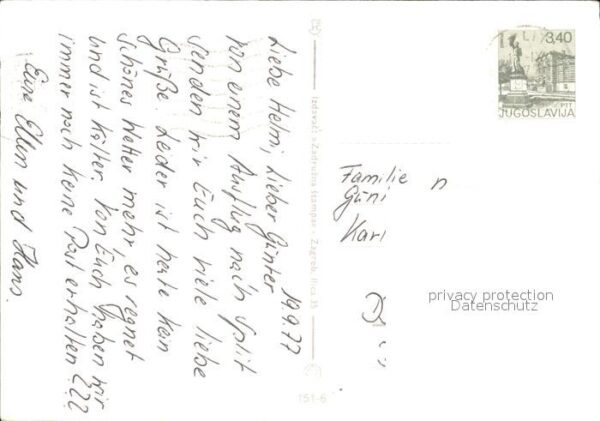 19.9.77
Liebe Helmi, lieber Günter
von einem Ausflug nach Split
senden wir Euch viele liebe
Grüße. Leider ist heute kein
schönes Wetter mehr es regnet
und ist kälter. Von Euch haben wir
immer noch keine Post erhalten ???
Eure Ellen und Hans.
Izdavač: »Zadružna štampa« - Zagreb, Ilica 35
151-6
3,40
PTT
JUGOSLAVIJA
Familie n
Güni
Karl
D
privacy protection
Datenschutz